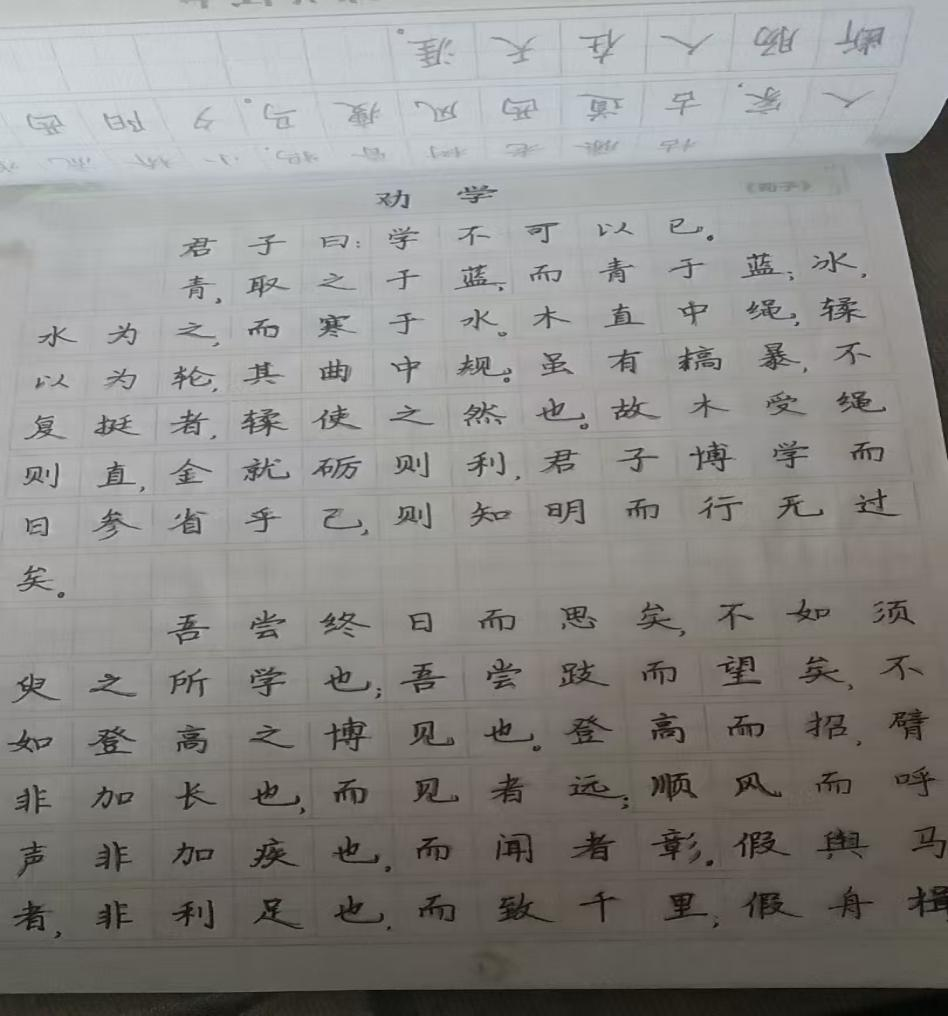 断肠人在天涯。
人家，古道西风瘦马。夕阳西
枯藤老树昏鸦，小桥流水
劝学
《荀子》
君子曰：学不可以已。
青，取之于蓝，而青于蓝；冰，
水为之，而寒于水。木直中绳，輮
以为轮，其曲中规。虽有槁暴，不
复挺者，輮使之然也。故木受绳
则直，金就砺则利，君子博学而
日参省乎己，则知明而行无过
矣。
吾尝终日而思矣，不如须
臾之所学也；吾尝跂而望矣，不
如登高之博见也。登高而招，臂
非加长也，而见者远；顺风而呼
声非加疾也，而闻者彰。假舆马
者，非利足也，而致千里；假舟楫